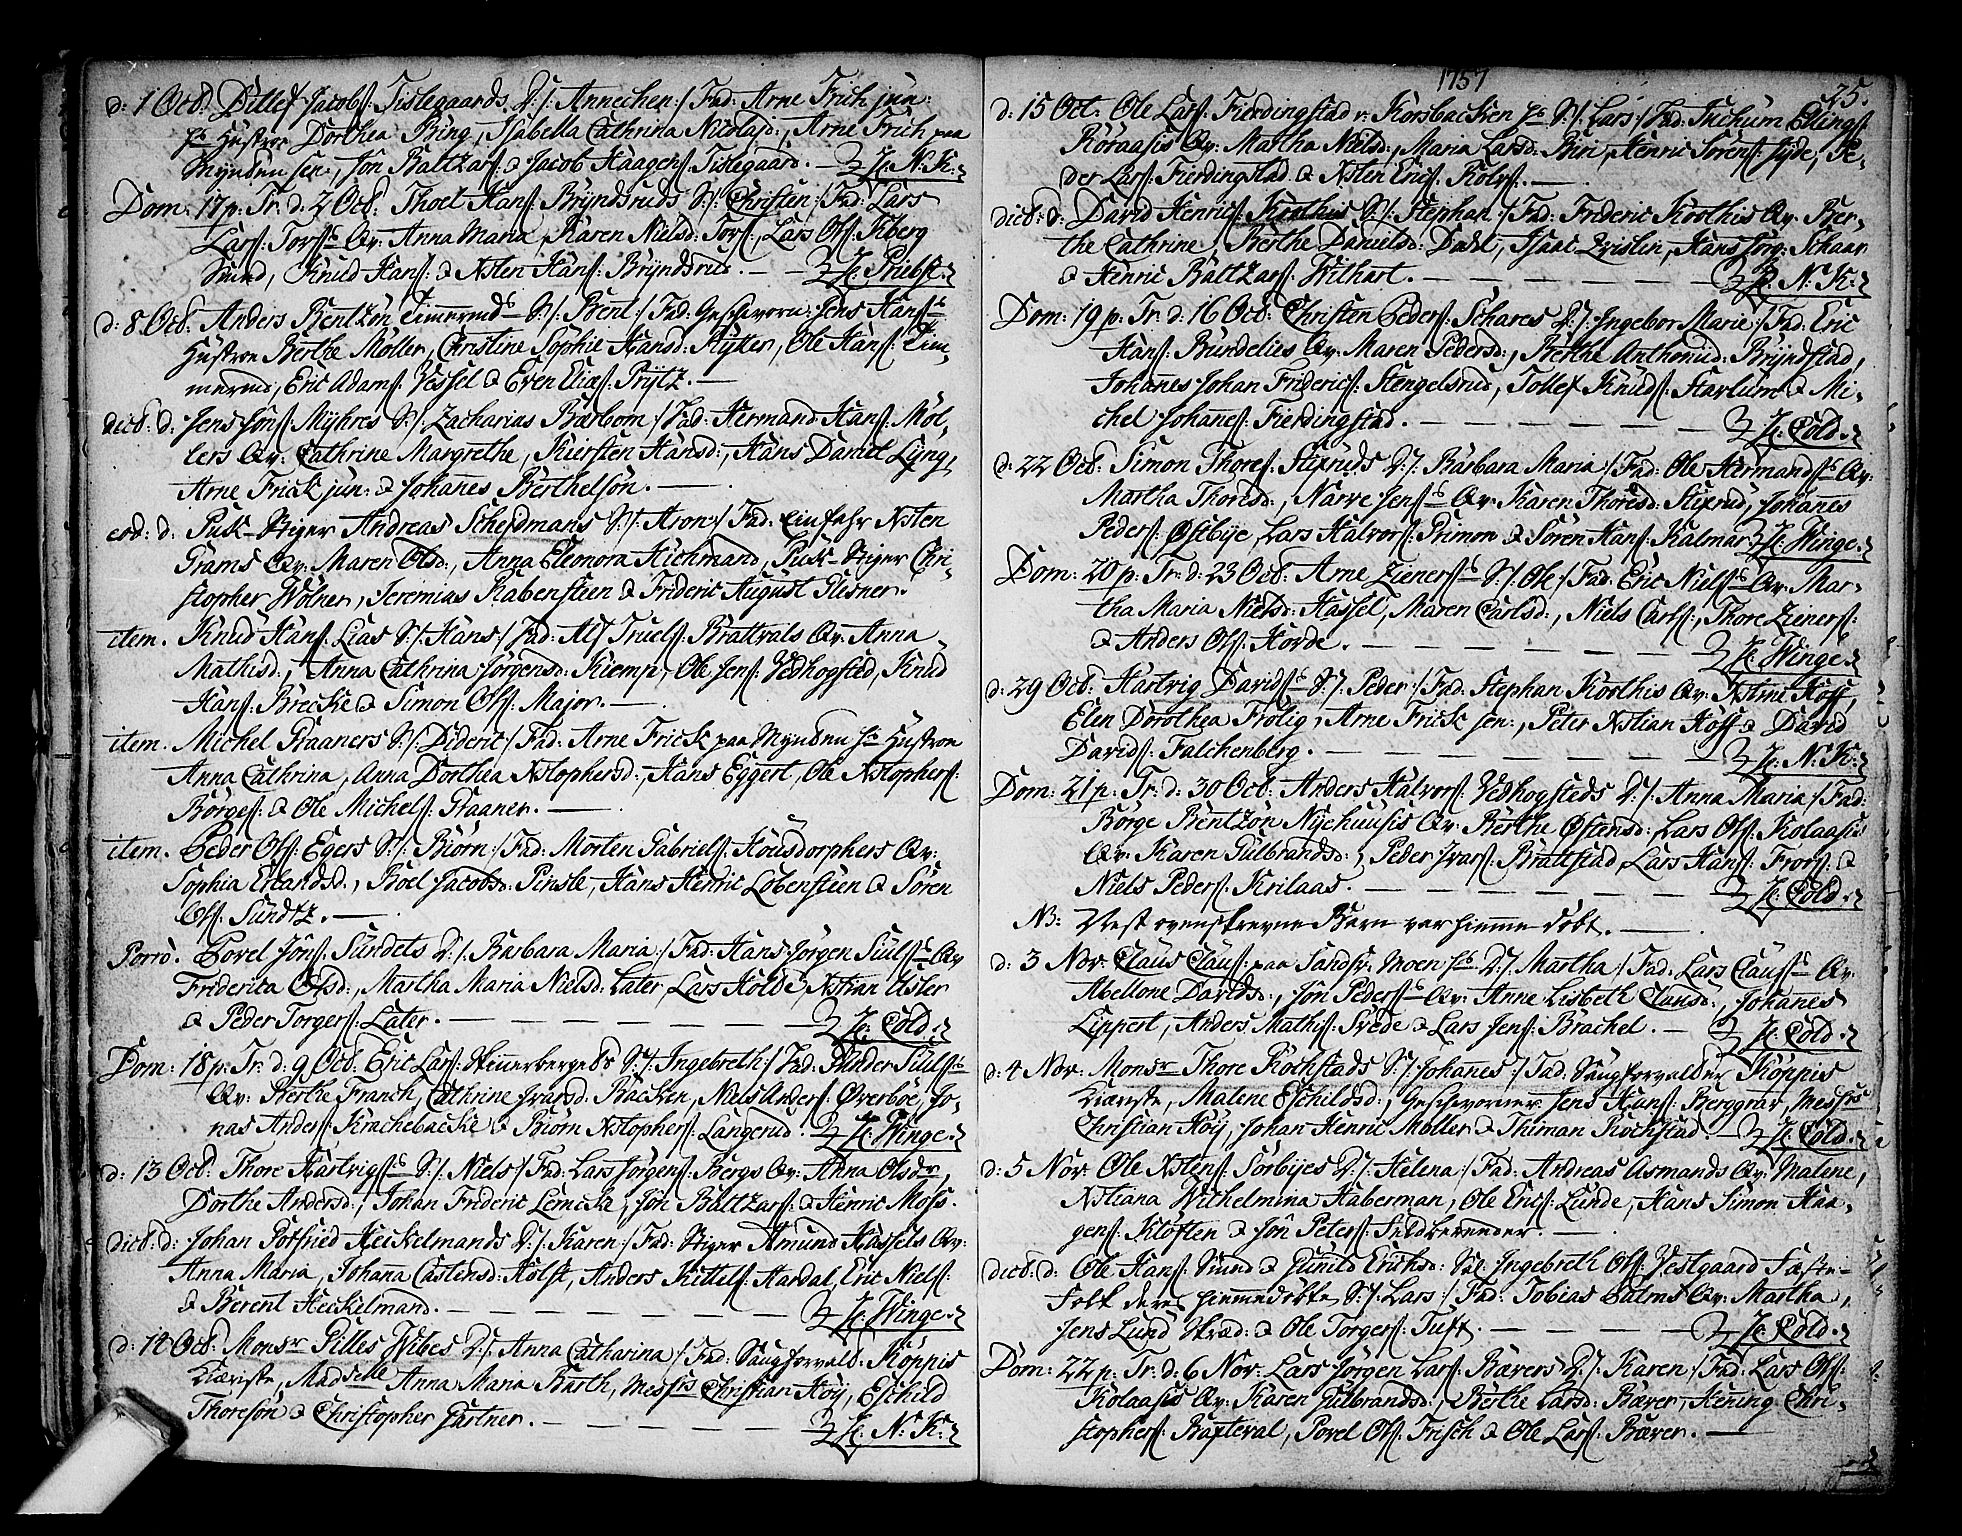 d: 1 Oct: Ditlef Jacobs: Tislegaards D:/: Annechen:/ Fad: Arne Frich jun:
Hustroe Dorthea Bing, Isabella Cathrina Nicolajd:, Arne Frich paa
Mynden sen:, Jon Baltzars: & Jacob Haagens: Tislegaard. — H: N: K:
Dom: 17 p: Tr: d: 2 Oct: Thoel Hans: Bryndsruds S:/: Christen:/ Fad: Lars
Lars: Tors: Qv: Anna Maria, Karen Nielsd: Tors:, Lars Ols: Kberg
Smed, Knud Hans: & Xsten Hans: Bryndsrud. — H: Priebst:
d: 8 Oct: Anders Bentzon Timrmd S:/: Bent:/ Fad: Geschworn: Jens Hans:
Hustroe Berthe Møller, Christine Sophie Hansd: Rytter, Ole Hans: Tim-
mermd, Eric Adams: Vessel & Even Elias: Prytz. —
dict: d: Jens Jons: Myhres S:/: Zacharias Bærbom:/ Fad: Hermand Hans: Møl-
lers Qv: Cathrine Margrethe, Kiersten Hansd:, Hans Daniel Lyng,
Arne Frick jun: & Johanes Berthelsøn. —
eod: d: Puk-Stiger Andreas Scheidmans S:/: Aron:/ Fad: Einfahr Xsten
Grams Qv: Maren Olsd:, Anna Eleonora Hichmand, Puk-Stiger Chri-
stopher Wølner, Jeremias Rabensteen & Frideric August Plisner.
item. Knud Hans: Lias S:/: Hans:/ Fad: Alf Truels: Brattvals Qv: Anna
Mathisd:, Anna Cathrina Jørgensd: Kiempe, Ole Jens: Vedhogsted, Knud
Hans: Brecke & Simon Ols: Major. —
item. Michel Graaners S:/: Dideric:/ Fad: Arne Frick paa Mynden Hustroe
Anna Cathrina, Anna Dorthea Xstophersd:, Hans Eggert, Ole Xstophers:
Børges: & Ole Michels: Graaner. —
item. Peder Ols: Egers S:/: Biørn:/ Fad: Morten Gabriels: Housdorphers Qv:
Sophia Erlandsd:, Boel Jacobsd: Pinsle, Hans Henric Lobensteen & Søren
Ols: Sundtz. —
Porrò. Povel Jøns: Sundets D:/: Barbara Maria:/ Fad: Hans Jørgen Siuls: Qv
Friderica Olsd:, Martha Maria Nielsd: Later, Lars Holde, Xstian Usler
& Peder Torgers: Later. — H: Cold:
Dom: 18 p: Tr: d: 9 Oct: Eric Lars: Skinnerbergets S:/: Ingebreth:/ Fad: Halder Siuls:
Qv: Berthe Franch, Cathrine Ivarsd: Backen, Niels Anders: Øverbøe, Jo-
nas Anders: Krachebacke & Biørn Xstophers: Langerud. H: Winge:
d: 13 Oct: Thore Hartvigs: S:/: Niels:/ Fad: Lars Jørgens: Bergs Qv: Anna Olsdr,
Dorthe Andersd:, Johan Frideric Lemcke, Jøn Baltzars: & Henric Moss.
dict: d: Johan Gotfried Heckelmands D:/: Karen:/ Fad: Stiger Amund Hassels Qv:
Anna Maria, Johana Castensd: Holst, Anders Kittels: Aardal, Eric Niels:
& Berent Heckelmand. — H: Winge:
d: 14 Oct: Monsr Gilles Wibes D:/: Anna Catharina:/ Fad: Saugforvald: Køppis
Kiæreste, Madselle Anna Maria Barth, Messrs Christian Høy, Eschild
Thoresøn & Christopher Gartner. — H: N: K:
1757
25.
d: 15 Oct. Ole Lars: Fierdingstad v: Korsbacken S:/: Lars:/ Fad: Jochum Ellings:
Røraasis Qv: Martha Nielsd:, Maria Larsd: Biri, Henric Sørens: Jyde, Pe-
der Lars: Fierdingstad & Xsten Erics: Kolys: —
dict: d: David Henrics: Korthis S:/: Stephan:/ Fad: Frideric Korthis Qv: Ber-
the Cathrine, Berthe Danielsd: Dahl, Isaac Qvislin, Hans Jørg: Schaar
& Henric Baltzars: Withart. — H: N: K:
Dom: 19 p: Tr: d: 16 Oct: Christen Peders: Schares D:/: Ingebor Marie:/ Fad: Eric
Hans: Bundelies Qv: Maren Pedersd:, Berthe Anthonid: Bryndstad,
Johanes Johan Friderics: Stengelsrud, Tollef Knuds: Harlum & Mi-
chel Johanes: Fierdingstad. — H: Cold:
d: 22 Oct: Simon Thores: Stixruds D:/: Barbara Maria:/ Fad: Ole Hermands: Qv:
Martha Thoresd:, Narve Jens: Qv: Karen Thoresd: Stixrud, Johannes
Peders: Østbye, Lars Halvors: Primon & Søren Hans: Kalmar H: Winge:
Dom: 20 p: Tr: d: 23 Oct: Arne Zieners: S:/: Ole:/ Fad: Eric Niels: Qv: Mar-
tha Maria Nielsd: Hassel, Maren Carlsd:, Niels Carls:, Thore Zieners:
& Anders Ols: Horde. — H: Winge:
d: 29 Oct: Hartvig Davids: S:/: Peder:/ Fad: Stephan Korthis Qv: Xstine Hoff,
Elen Dorothea Frolig, Arne Frick sen:, Peter Xstian Hoff & David
Davids: Falchenberg. — H: N: K:
Dom: 21 p: Tr: d: 30 Oct: Anders Halvors: Vedhogsteds D:/: Anna Maria:/ Fad:
Børge Bentzon Nyehuusis Qv: Berthe Østensd:, Lars Ols: Kolaasis
Qv: Karen Gulbrandsd:, Peder Ivars: Brattstad, Lars Hans: Frors: &
Niels Peders: Krilaas. — H: Cold:
NB: Næst ovenskrevne Barn var hiemme døbt. —
d: 3 Nov: Claus Claus: paa Sandsv: Moen D:/: Martha:/ Fad: Lars Claus: Qv:
Abellone Davidsd:, Jøn Peders: Qv: Anne Lisbeth Clausd:, Johanes
Lippert, Anders Mathis: Svede & Lars Jens: Brachel. — H: Cold:
d: 4 Nov: Monsr Thore Rochstads S:/: Johannes:/ Fad: Saugforvalder Køppis
Kiæreste, Malene Eschildsd:, Geschworner: Jens Hans: Berggrav, Messrs
Christian Høy, Johan Henric Møller & Thurman Rochstad. — H: Cold:
d: 5 Nov: Ole Xstens: Sørbyes D:/: Helena:/ Fad: Andreas Asmands Qv: Malene,
Xstiana Wilhelmina Haberman, Ole Erics: Lunde, Hans Simon Haa-
gens: Kloften & Jøn Peters: Feldbereder. —
dict: d: Ole Hans: Smed & Gunild Erichsd: Sal: Ingebreth Ols: Vestgaard Fæste-
folk deres hiemmedøbte S:/: Lars:/ Fad: Tobias Salms Qv: Martha,
Jens Lund Skræd: & Ole Torgers: Tuft. — H: Cold:
Dom: 22 p: Tr: d: 6 Nov: Lars Jørgen Lars: Bævers D:/: Karen:/ Fad: Lars Ols:
Kolaasis Qv: Karen Gulbrandsd:, Berthe Larsd: Bæver, Hening Chri-
stophers: Bagteval, Povel Ols: Frisch & Ole Lars: Bæver. —